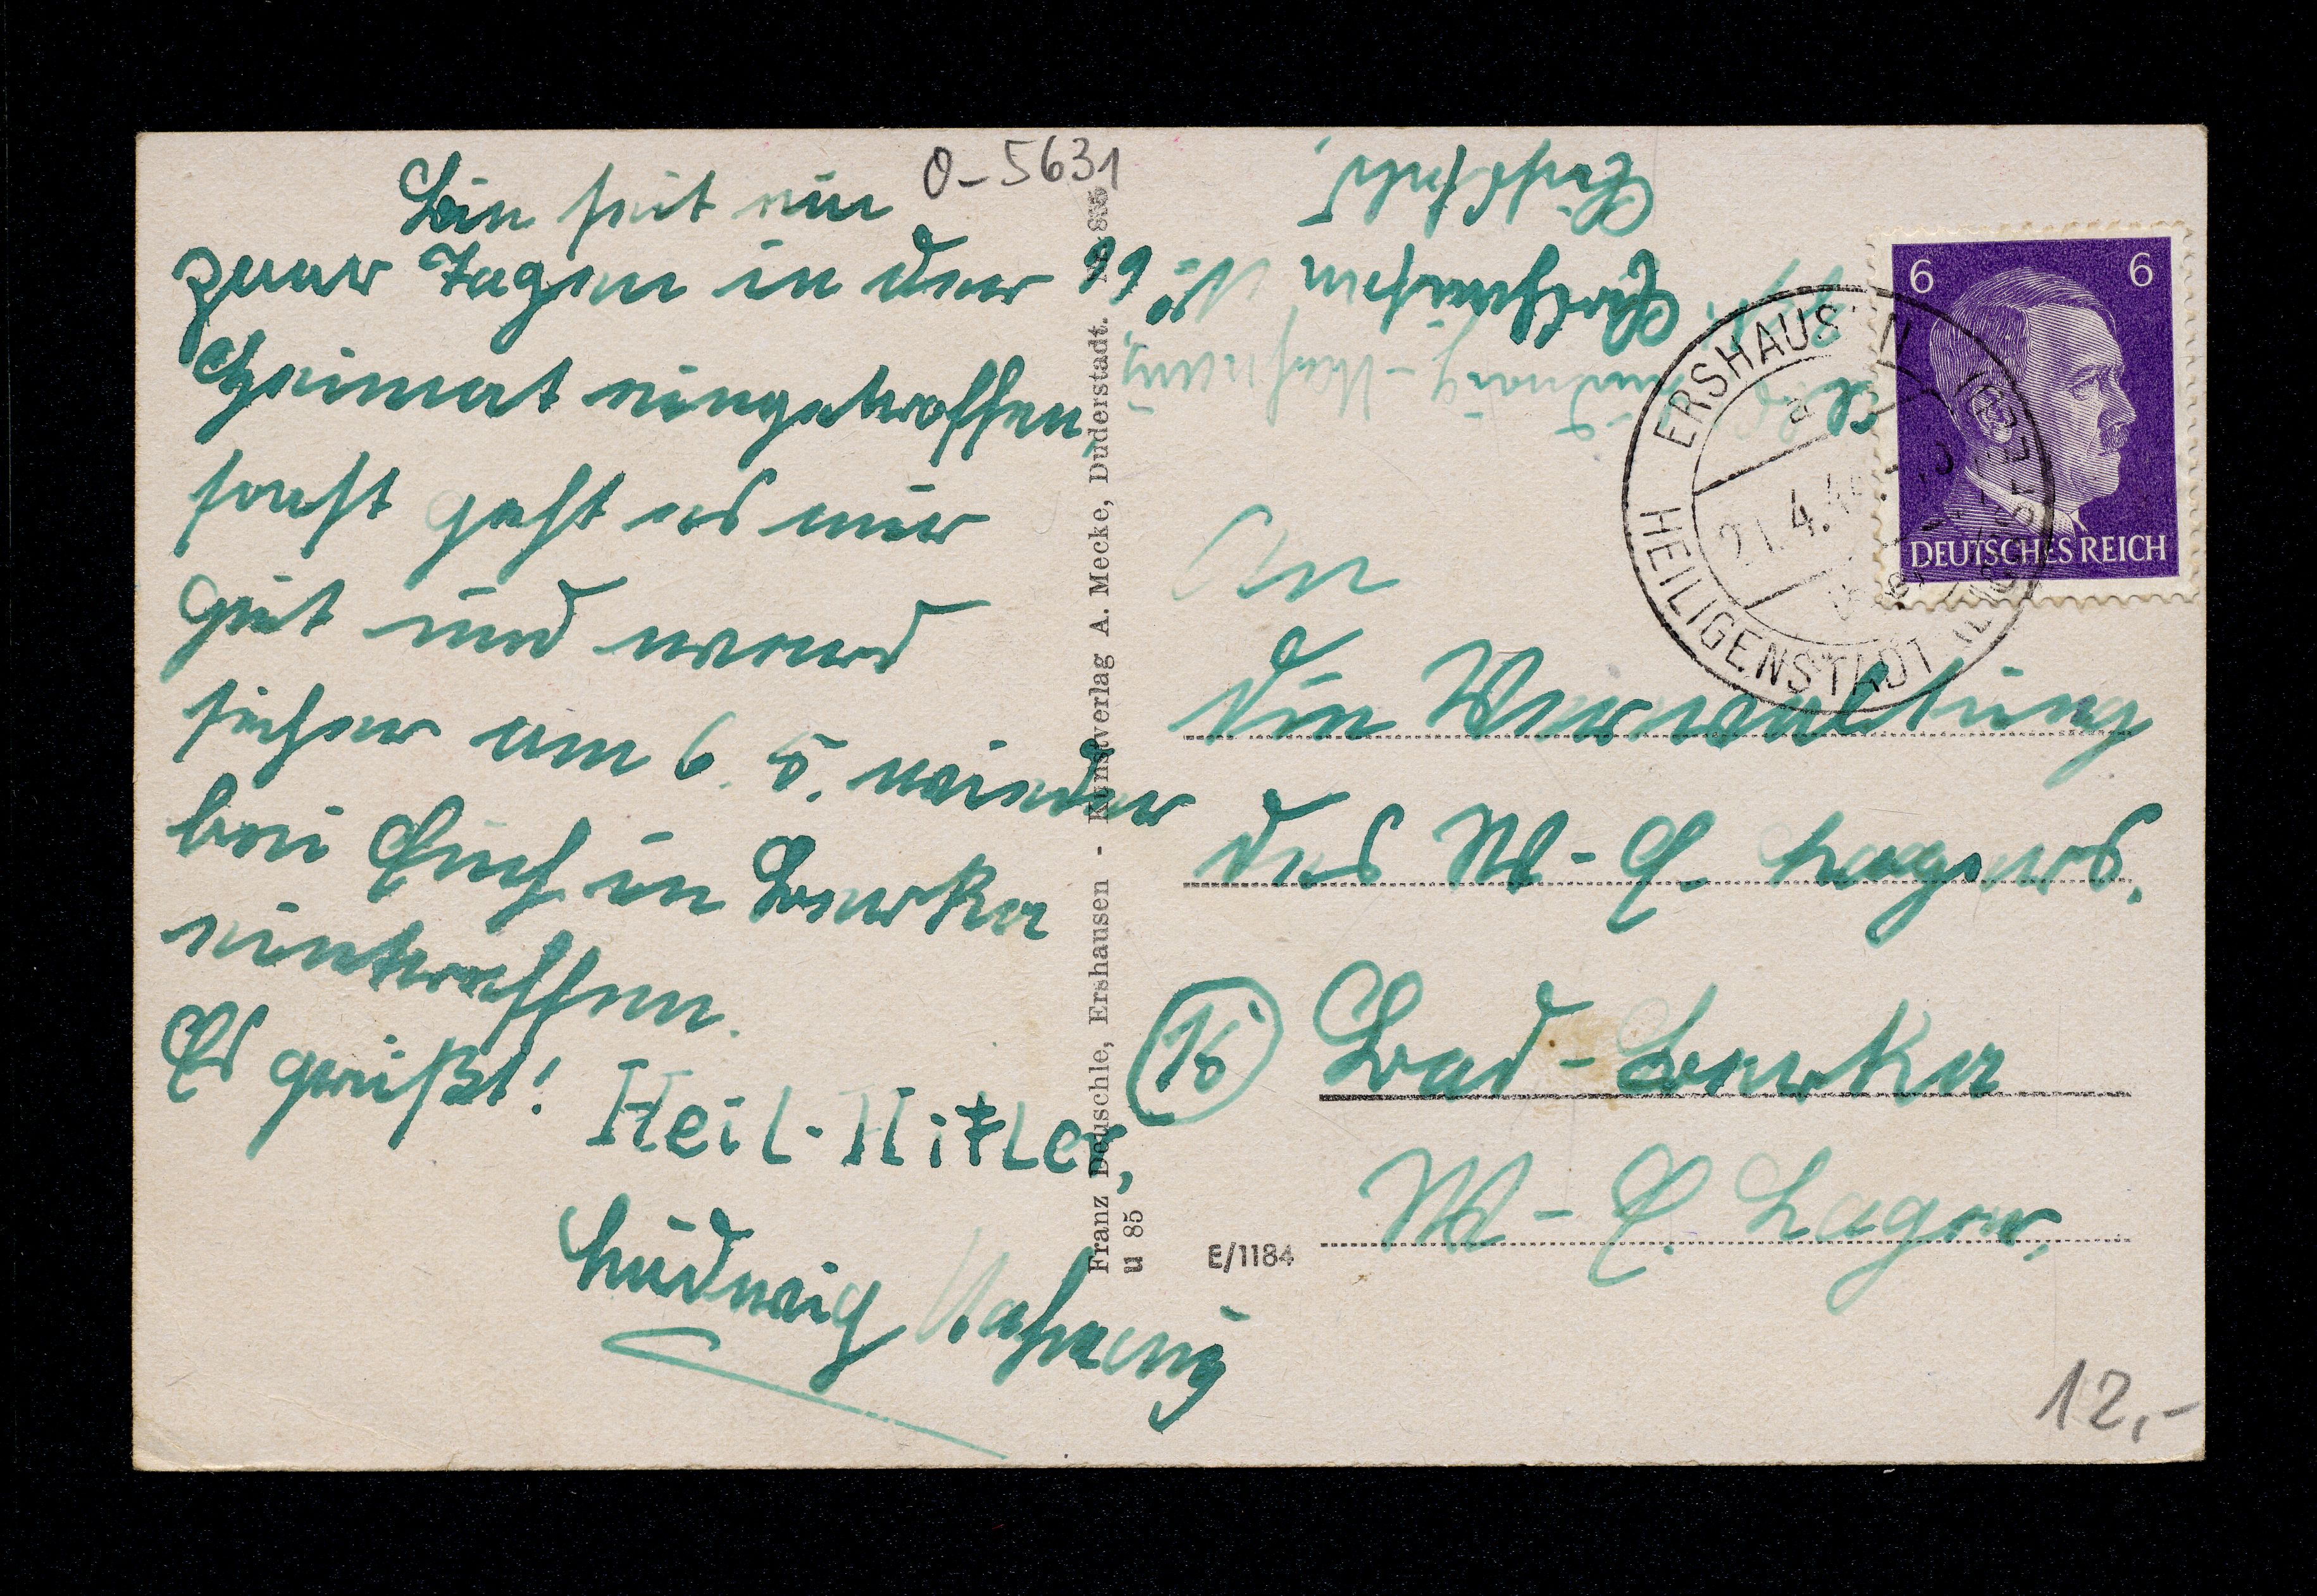 O-5631
Bin seit ein
paar Tagen in der
Heimat eingetroffen,
sonst geht es mir
gut und werd
sicher am 6. 5. wieder
bei Euch in Berka
eintreffen.
Es grüßt!
Heil-Hitler,
Ludwig
Franz Deuschle, Ershausen - Kunstverlag A. Mecke, Duderstadt.
u 85
E/1184
Ludwig
Ershausen № 99
Eichsfeld,
6 6
DEUTSCHES REICH
ERSHAUSEN
a
21.4.4
HEILIGENSTADT
An
die Verwaltung
des W-E Lagers.
Bad-Berka
W-E. Lager.
12,-